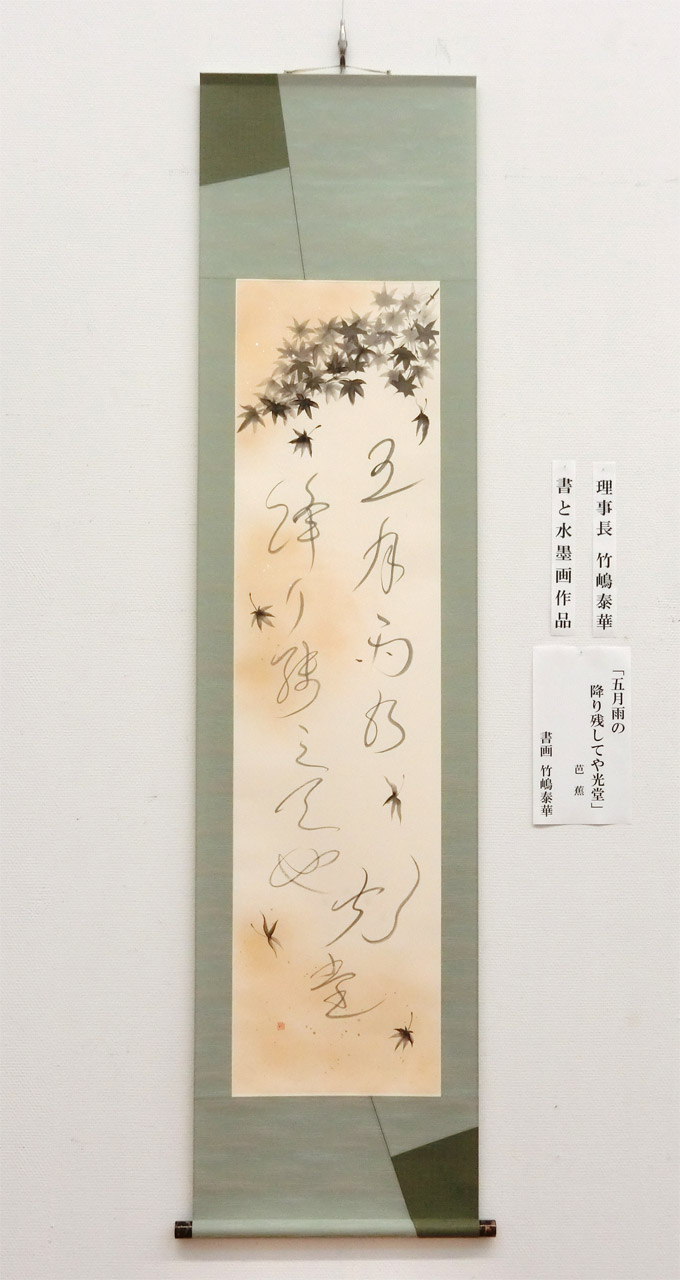 五月雨の
降り残してや
光堂
理事長 竹嶋泰華
書と水墨画作品
「五月雨の
降り残してや光堂」
芭蕉
書画 竹嶋泰華